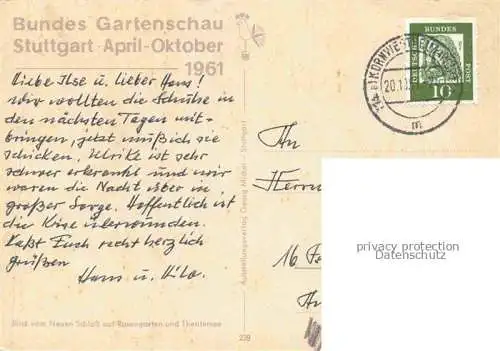 Bundes Gartenschau
Stuttgart · April-Oktober
1961
Liebe Ilse u. lieber Hans!
wir wollten die Schuhe in
den nächsten Tagen mit-
bringen, jetzt muß ich sie
schicken. Ulrike ist sehr
schwer erkrankt und wir
waren die Nacht über in
großer Sorge. Hoffentlich ist
die Krise überwunden.
Laßt Euch recht herzlich
grüßen
Hans u.
Blick vom Neuen Schloß auf Rosengarten und Theatersee
239
Ausstellungsverlag Georg Michel · Stuttgart
KORNWESTHEIM
20.1
m
DEUTSCHE
BUNDES
10
1804
An
Herrn
16
privacy protection
Datenschutz